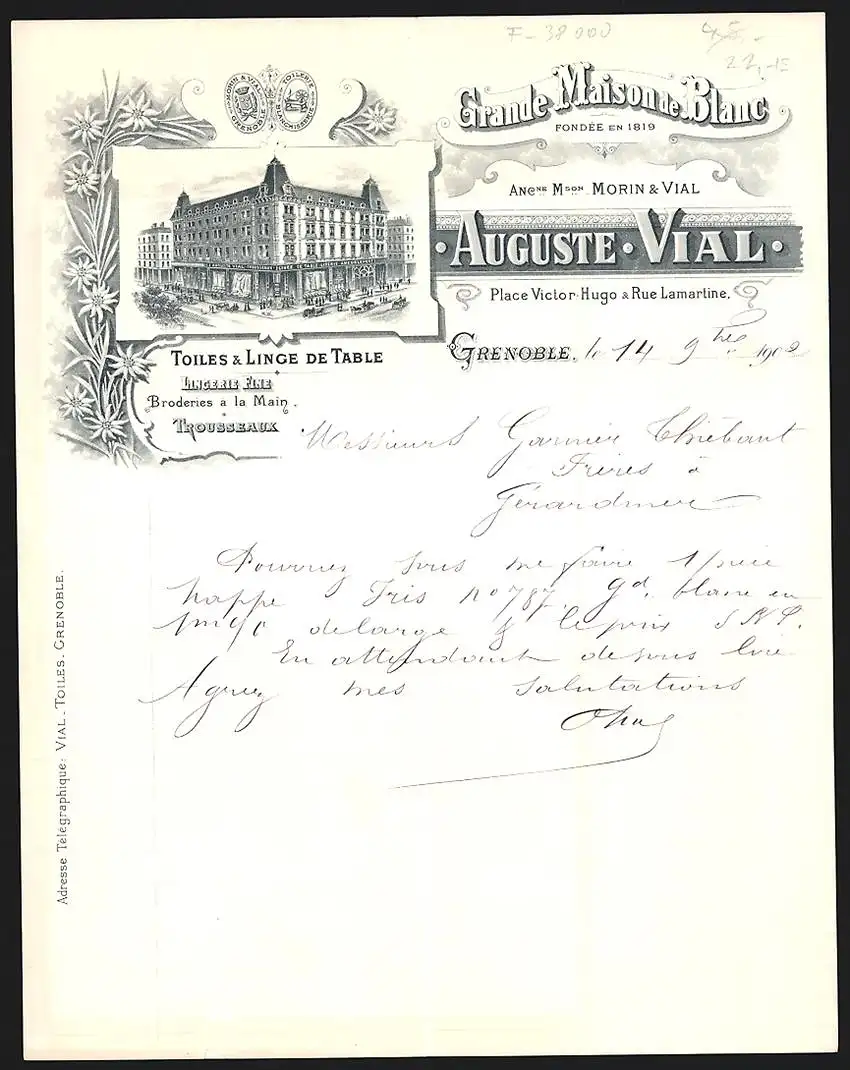 F-38000
MORIN & VIAL GRENOBLE
TOILERIE BLANCHISSERIE
Grande Maison de Blanc
FONDÉE EN 1819
ANCNE MSON MORIN & VIAL
AUGUSTE · VIAL
Place Victor-Hugo & Rue Lamartine.
GRENOBLE, le 14 9bre 1902
TOILES & LINGE DE TABLE
LINGERIE FINE
Broderies à la Main.
TROUSSEAUX
Messieurs Garnier Thiébaut
Frères à
Gérardmer
Pourriez vous me faire 1 pièce
nappe Iris no 787 gd. blanc en
de large & le prix
En attendant de vous lire
Agréez mes salutations
Adresse Télégraphique: VIAL-TOILES. GRENOBLE.